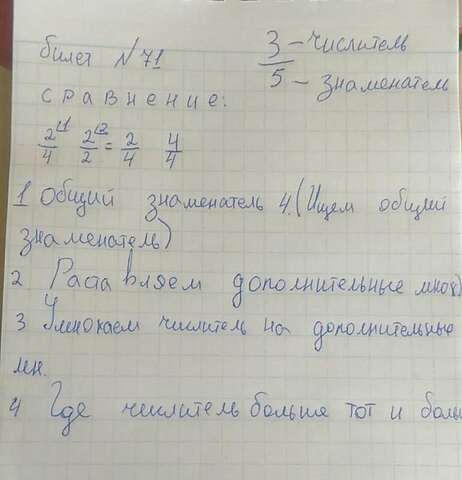 билет №71
3 – числитель
5 – знаменатель
сравнение:
2/4 \1 2/2 \2 = 2/4 4/4
1 Общий знаменатель 4. (Ищем общий
знаменатель)
2 Раставляем дополнительные множ)
3 Умножаем числитель на дополнительные
мн.
4 Где числитель больше тот и больш